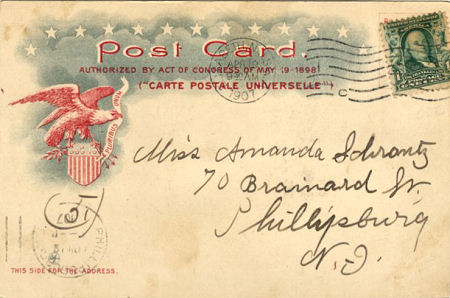 Post Card.
AUTHORIZED BY ACT OF CONGRESS OF MAY 19-1898
("CARTE POSTALE UNIVERSELLE")
1907
C
E PLURIBUS UNUM
Miss Amanda Schrantz
70 Brainard St.
Phillipsburg
N. J.
THIS SIDE FOR THE ADDRESS.